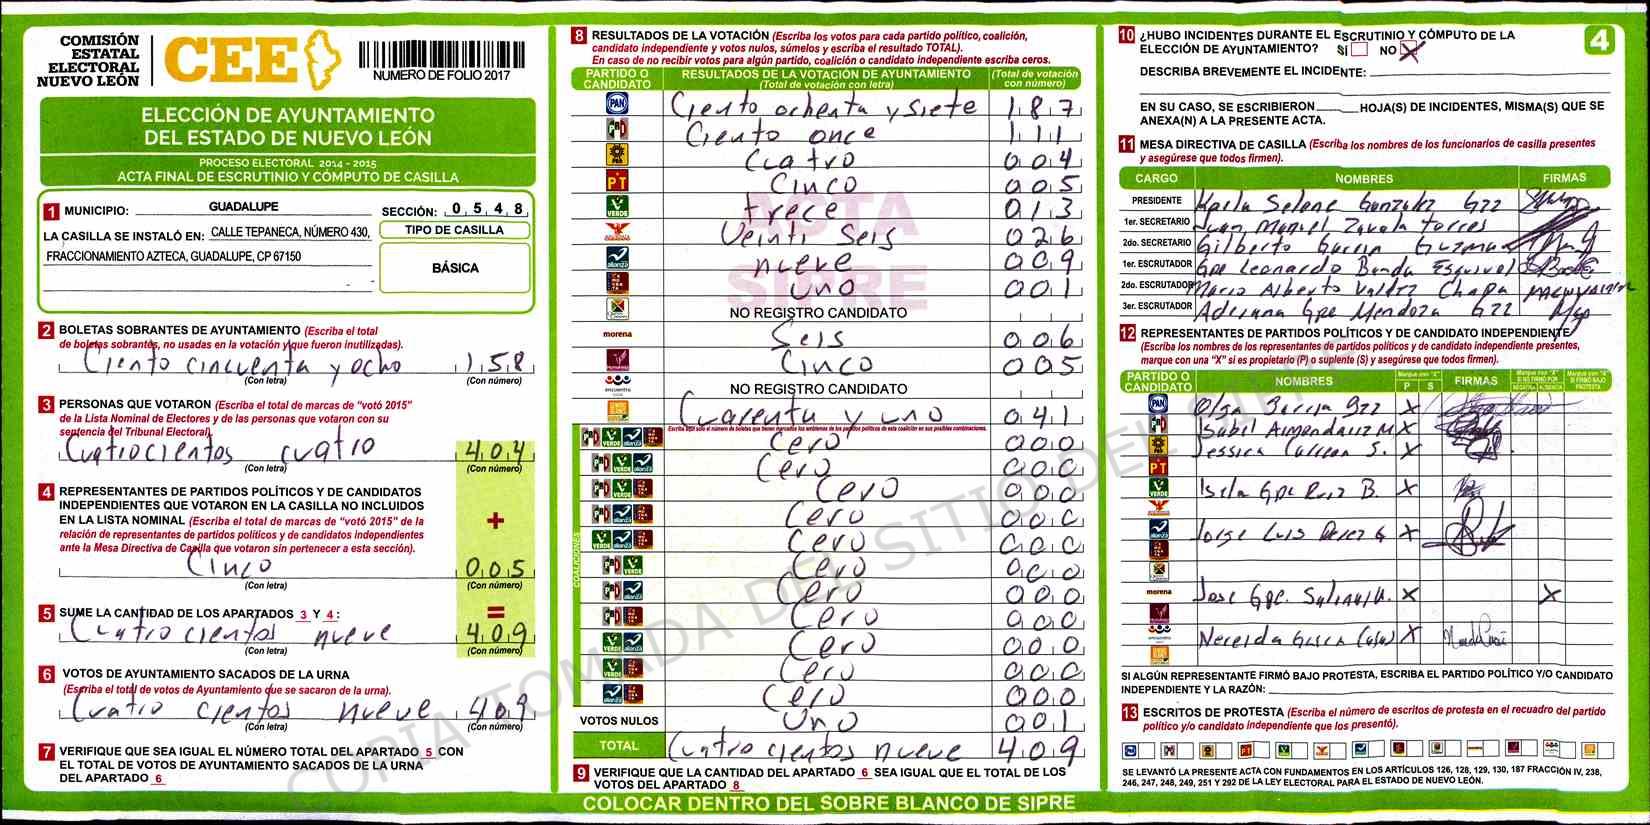 COMISIÓN
ESTATAL
ELECTORAL
NUEVO LEÓN
CEE
NUMERO DE FOLIO 2017
ELECCIÓN DE AYUNTAMIENTO
DEL ESTADO DE NUEVO LEÓN
PROCESO ELECTORAL 2014 - 2015
ACTA FINAL DE ESCRUTINIO Y CÓMPUTO DE CASILLA
1 MUNICIPIO: GUADALUPE SECCIÓN: 0 5 4 8
LA CASILLA SE INSTALÓ EN: CALLE TEPANECA, NÚMERO 430,
FRACCIONAMIENTO AZTECA, GUADALUPE, CP 67150
TIPO DE CASILLA
BÁSICA
2 BOLETAS SOBRANTES DE AYUNTAMIENTO (Escriba el total
de boletas sobrantes, no usadas en la votación y que fueron inutilizadas).
Ciento cincuenta y ocho 1 5 8
(Con letra) (Con número)
3 PERSONAS QUE VOTARON (Escriba el total de marcas de "votó 2015"
de la Lista Nominal de Electores y de las personas que votaron con su
sentencia del Tribunal Electoral).
Cuatrocientos cuatro 4 0 4
(Con letra) (Con número)
4 REPRESENTANTES DE PARTIDOS POLÍTICOS Y DE CANDIDATOS
INDEPENDIENTES QUE VOTARON EN LA CASILLA NO INCLUIDOS
EN LA LISTA NOMINAL (Escriba el total de marcas de "votó 2015" de la
relación de representantes de partidos políticos y de candidatos independientes
ante la Mesa Directiva de Casilla que votaron sin pertenecer a esta sección).
+
Cinco 0 0 5
(Con letra) (Con número)
5 SUME LA CANTIDAD DE LOS APARTADOS 3 Y 4 : =
Cuatro cientos nueve 4 0 9
(Con letra) (Con número)
6 VOTOS DE AYUNTAMIENTO SACADOS DE LA URNA
(Escriba el total de votos de Ayuntamiento que se sacaron de la urna).
Cuatro cientos nueve 4 0 9
(Con letra) (Con número)
7 VERIFIQUE QUE SEA IGUAL EL NÚMERO TOTAL DEL APARTADO 5 CON
EL TOTAL DE VOTOS DE AYUNTAMIENTO SACADOS DE LA URNA
DEL APARTADO 6
8 RESULTADOS DE LA VOTACIÓN (Escriba los votos para cada partido político, coalición,
candidato independiente y votos nulos, súmelos y escriba el resultado TOTAL).
En caso de no recibir votos para algún partido, coalición o candidato independiente escriba ceros.
PARTIDO O CANDIDATO RESULTADOS DE LA VOTACIÓN DE AYUNTAMIENTO (Total de votación con letra) (Total de votación con número)
PAN Ciento ochenta y siete 1 8 7
PRD Ciento once 1 1 1
PRD Cuatro 0 0 4
PT Cinco 0 0 5
VERDE trece 0 1 3
Veinti seis 0 2 6
alianza nueve 0 0 9
uno 0 0 1
NO REGISTRO CANDIDATO
morena Seis 0 0 6
Cinco 0 0 5
encuentro NO REGISTRO CANDIDATO
Cuarenta y uno 0 4 1
Escriba aquí solo el número de boletas que tienen marcados los emblemas de los partidos políticos de esta coalición en sus posibles combinaciones.
COALICIONES
Cero 0 0 0
Cero 0 0 0
Cero 0 0 0
Cero 0 0 0
Cero 0 0 0
Cero 0 0 0
Cero 0 0 0
Cero 0 0 0
Cero 0 0 0
Cero 0 0 0
Cero 0 0 0
VOTOS NULOS Uno 0 0 1
TOTAL Cuatro cientos nueve 4 0 9
9 VERIFIQUE QUE LA CANTIDAD DEL APARTADO 6 SEA IGUAL QUE EL TOTAL DE LOS
VOTOS DEL APARTADO 8
ACTA
SIPRE
COPIA TOMADA DEL SITIO DEL SIPRE
COLOCAR DENTRO DEL SOBRE BLANCO DE SIPRE
4
10 ¿HUBO INCIDENTES DURANTE EL ESCRUTINIO Y CÓMPUTO DE LA
ELECCIÓN DE AYUNTAMIENTO? SÍ NO X
DESCRIBA BREVEMENTE EL INCIDENTE:
EN SU CASO, SE ESCRIBIERON HOJA(S) DE INCIDENTES, MISMA(S) QUE SE
ANEXA(N) A LA PRESENTE ACTA.
11 MESA DIRECTIVA DE CASILLA (Escriba los nombres de los funcionarios de casilla presentes
y asegúrese que todos firmen).
CARGO NOMBRES FIRMAS
PRESIDENTE Karla Selene Gonzalez Gzz
1er. SECRETARIO Juan Manuel Zavala Torres
2do. SECRETARIO Gilberto Garcia Guzman
1er. ESCRUTADOR Gpe Leonardo Banda Esquivel
2do. ESCRUTADOR Mario Alberto Valdez Chapa
3er. ESCRUTADOR Adriana Gpe Mendoza Gzz
12 REPRESENTANTES DE PARTIDOS POLÍTICOS Y DE CANDIDATO INDEPENDIENTE
(Escriba los nombres de los representantes de partidos políticos y de candidato independiente presentes,
marque con una "X" si es propietario (P) o suplente (S) y asegúrese que todos firmen).
PARTIDO O CANDIDATO NOMBRES P S FIRMAS
PAN Olga Garcia Gzz X
Isabel Almendariz M X
Jessica S. X
PT
VERDE Isela Gpe Ruiz B. X
Jorge Luis Perez G X
morena Jose Gpe. X X
Nereida X
SI ALGÚN REPRESENTANTE FIRMÓ BAJO PROTESTA, ESCRIBA EL PARTIDO POLÍTICO Y/O CANDIDATO
INDEPENDIENTE Y LA RAZÓN:
13 ESCRITOS DE PROTESTA (Escriba el número de escritos de protesta en el recuadro del partido
político y/o candidato independiente que los presentó).
SE LEVANTÓ LA PRESENTE ACTA CON FUNDAMENTOS EN LOS ARTÍCULOS 126, 128, 129, 130, 187 FRACCIÓN IV, 238,
246, 247, 248, 249, 251 Y 292 DE LA LEY ELECTORAL PARA EL ESTADO DE NUEVO LEÓN.